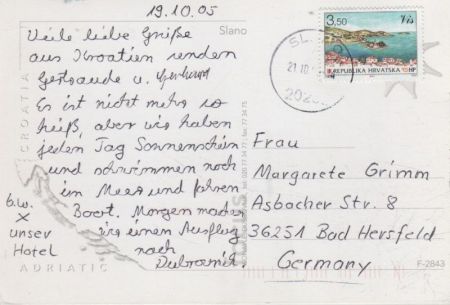 19.10.05
Slano
Viele liebe Grüße
aus Kroatien senden
Gertraude u.
Es ist nicht mehr so
heiß, aber wir haben
jeden Tag Sonnenschein
und schwimmen noch
im Meer und fahren
Boot. Morgen machen
wir einen Ausflug
nach
Dubrovnik.
b.w.
x
unser
Hotel
CROATIA
ADRIATIC
3,50
Vis
REPUBLIKA HRVATSKA
HP
21.10.
Frau
Margarete Grimm
Asbacher Str. 8
36251 Bad Hersfeld
Germany
F-2843